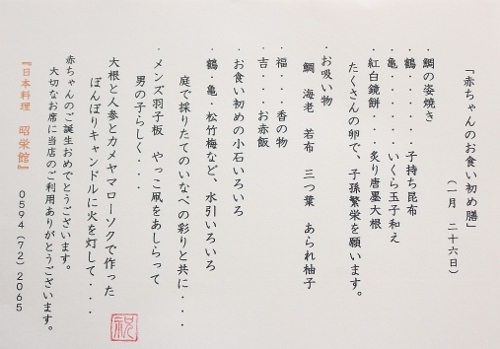 「赤ちゃんのお食い初め膳」
（一月　二十六日）
・鯛の姿焼き
・鶴・・・・・・子持ち昆布
・亀・・・・・・いくら玉子和え
・紅白鏡餅・・・炙り唐墨大根
たくさんの卵で、子孫繁栄を願います。
・お吸い物
鯛　海老　若布　三つ葉　あられ柚子
・福・・・香の物
・吉・・・お赤飯
・お食い初めの小石いろいろ
・鶴・亀・松竹梅など、水引いろいろ
庭で採りたてのいなべの彩りと共に・・・
・メンズ羽子板　やっこ凧をあしらって
男の子らしく・・・
大根と人参とカメヤマローソクで作った
ぼんぼりキャンドルに火を灯して・・・
赤ちゃんのご誕生おめでとうございます。
大切なお席に当店のご利用ありがとうございます。
『日本料理　昭栄館』　0594（72）2065
祝